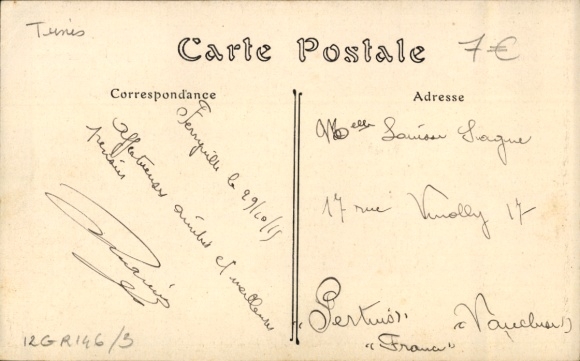 Tunis
7€
Carte Postale
Correspondance
Adresse
Ferryville le 29/10/15
affectueuses amitiés et meilleures
pensées
Melle Louise
17 rue 17
Pertuis
"Vaucluse"
"France"
12GR146/3